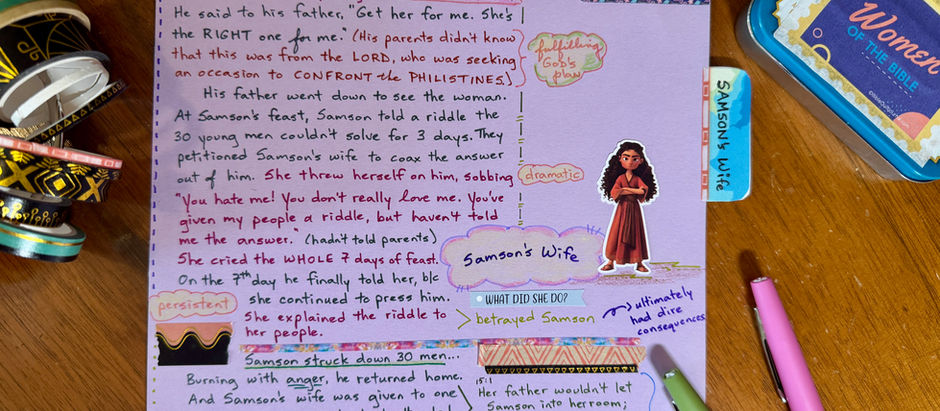 He said to his father, "Get her for me. She's
the RIGHT one for me." (His parents didn't know
that this was from the LORD, who was seeking
an occasion to CONFRONT the PHILISTINES.)
fulfilling
God's
plan
His father went down to see the woman.
At Samson's feast, Samson told a riddle the
30 young men couldn't solve for 3 days. They
petitioned Samson's wife to coax the answer
out of him. She threw herself on him, sobbing
dramatic
"You hate me! You don't really love me. You've
given my people a riddle, but haven't told
me the answer." (hadn't told parents)
She cried the WHOLE 7 days of feast.
On the 7th day he finally told her, b/c
she continued to press him.
She explained the riddle to
her people.
persistent
Samson's Wife
WHAT DID SHE DO?
betrayed Samson
ultimately
had dire
consequences
Samson struck down 30 men...
Burning with anger, he returned home.
And Samson's wife was given to one
15:1
Her father wouldn't let
Samson into her room;
SAMSON'S Wife
Women
OF THE BIBLE